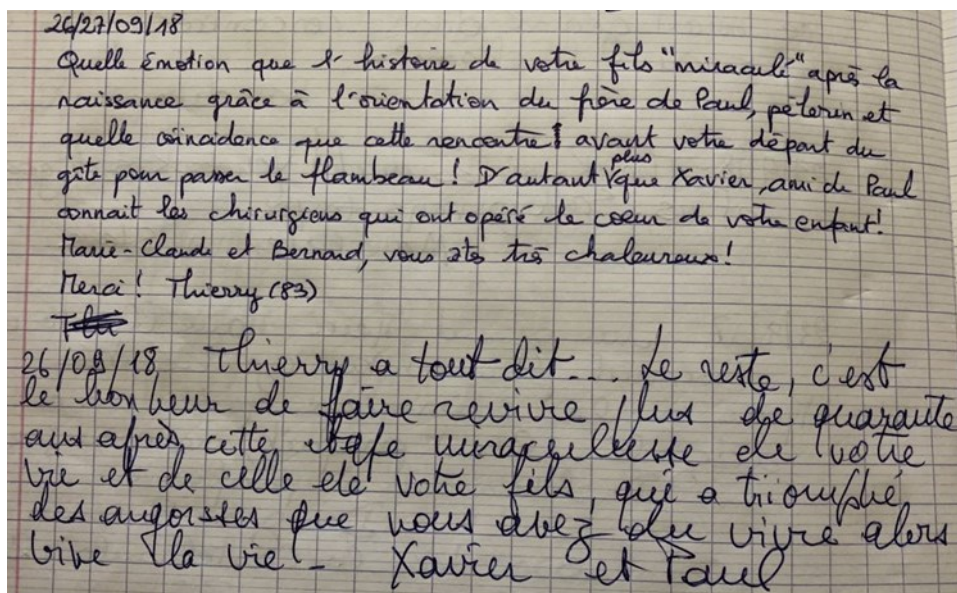 26/27/09/18
Quelle émotion que l'histoire de votre fils "miraculé" après la
naissance grâce à l'orientation du frère de Paul, pèlerin et
quelle coïncidence que cette rencontre avant votre départ du
gîte pour passer le flambeau ! D'autant plus que Xavier, ami de Paul
connait les chirurgiens qui ont opéré le coeur de votre enfant!
Marie-Claude et Bernard, vous êtes très chaleureux!
Merci ! Thierry (83)
26/09/18 Thierry a tout dit... Le reste, c'est
le bonheur de faire revivre plus de quarante
ans après cette étape miraculeuse de votre
vie et de celle de votre fils, qui a triomphé
des angoisses que vous avez du vivre alors
Vive la vie - Xavier et Paul